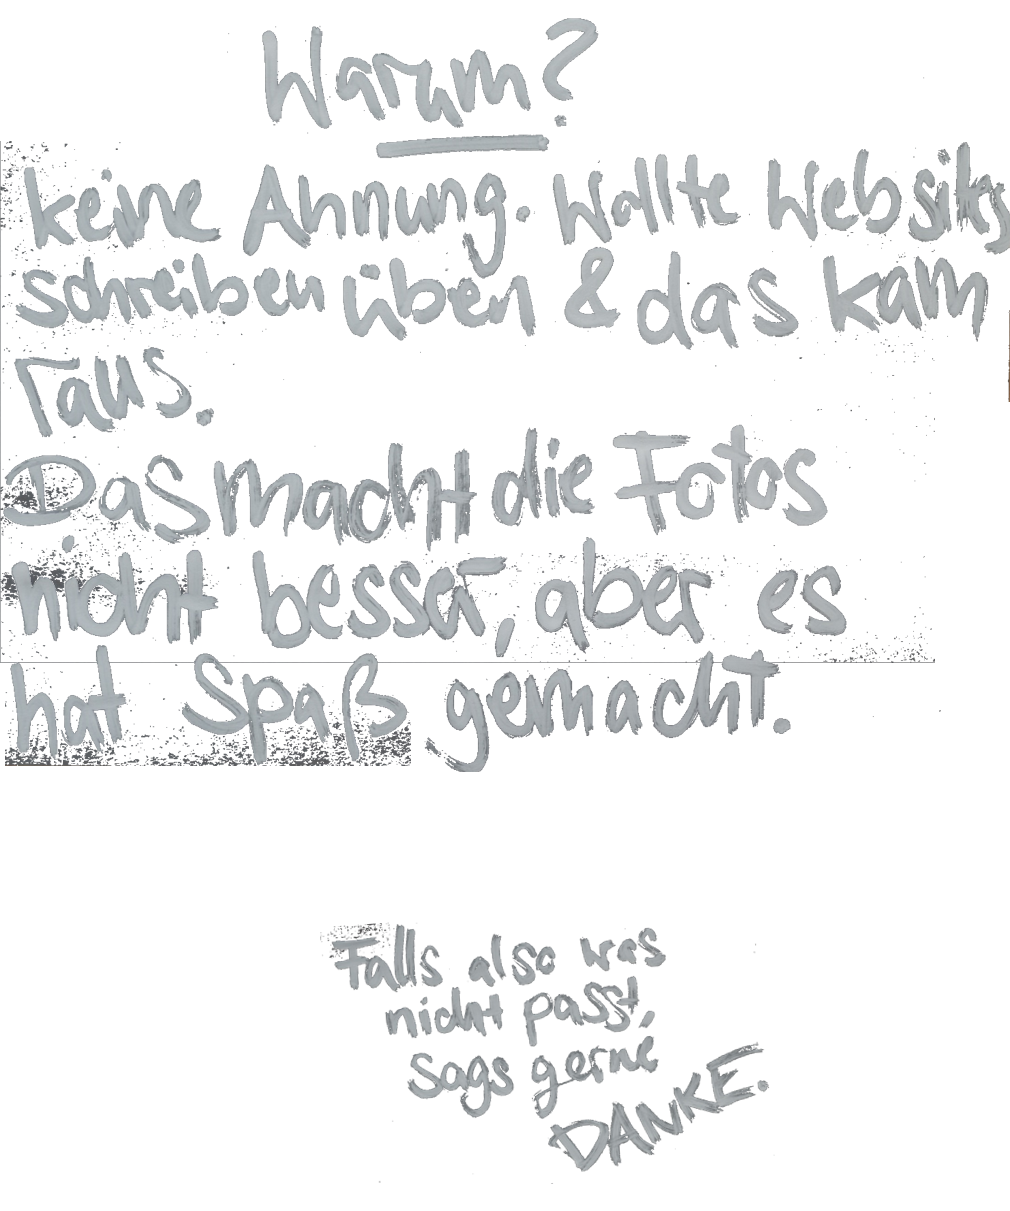 Warum?
keine Ahnung. Wollte Websites
schreiben üben & das kam
raus.
Das macht die Fotos
nicht besser, aber es
hat Spaß gemacht.
Falls also was
nicht passt,
sags gerne
DANKE.